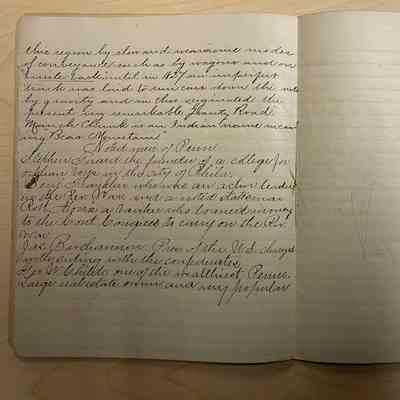 this region by slow and wearisome modes
of conveyance such as by wagons and on
mule back until in 1827 an imperfect
track was laid to run cars down the
by gravity and in this originated the
present very remarkable Gravity Road.
Mauch Chunk is an Indian name mean
ing Bear Mountain
Noted men of Penna
Stephen Girard the founder of a college for
orphan boys in the city of Phila.
Benj Franklin who was an active leader
in the Rev. War and a noted statesman
Robt. Morris a banker who loaned money
to the Cont. Congress to carry on the Rev.
War
Jas. Buchanan Pres of the U.S. charged
with siding with the confederates
Geo W. Childs one of the wealthiest Penna.
Large real estate owner and very popular